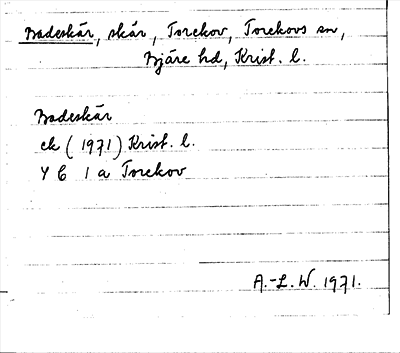 Badeskär, skär, Torekov, Torekovs sn,
Bjäre hd, Krist. l.
Badeskär
ek (1971) Krist. l.
Y C 1 a Torekov
A.-L. W. 1971.